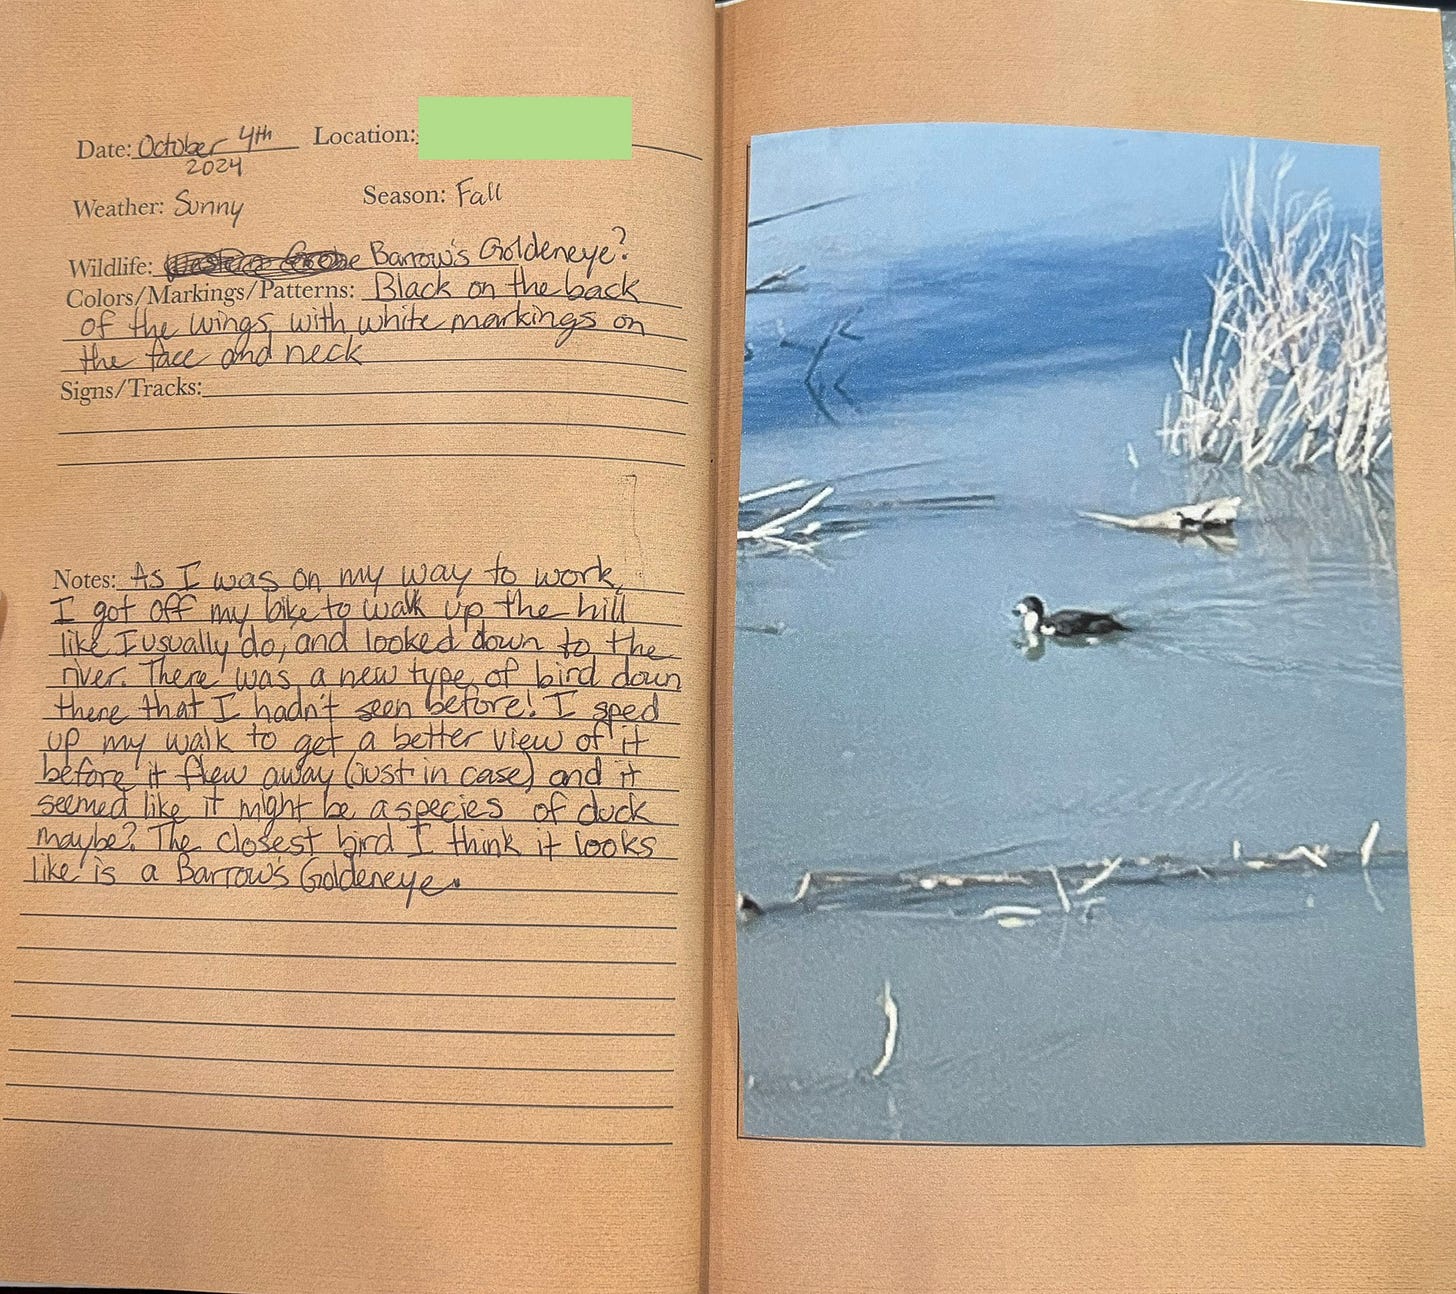 Date: October 4th Location:
2024
Weather: Sunny Season: Fall
Wildlife: Barrow's Goldeneye?
Colors/Markings/Patterns: Black on the back
of the wings, with white markings on
the face and neck
Signs/Tracks:
Notes: As I was on my way to work,
I got off my bike to walk up the hill
like I usually do, and looked down to the
river. There was a new type of bird down
there that I hadn't seen before! I sped
up my walk to get a better view of it
before it flew away (just in case) and it
seemed like it might be a species of duck
maybe? The closest bird I think it looks
like is a Barrow's Goldeneye.